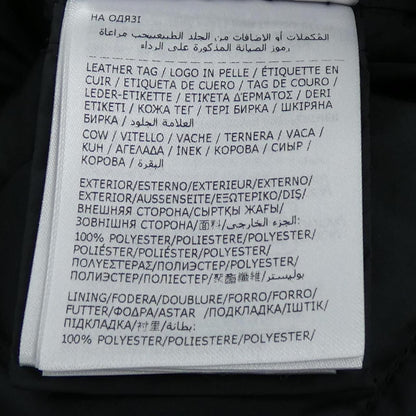 НА ОДЯЗІ
المكملات أو الاضافات من الجلد الطبيعييجب مراعاة
رموز الصيانة المذكورة على الرداء
LEATHER TAG / LOGO IN PELLE / ÉTIQUETTE EN
CUIR / ETIQUETA DE CUERO / TAG DE COURO /
LEDER-ETIKETTE / ΕΤΙΚΕΤΑ ΔΕΡΜΑΤΟΣ / DERI
ETIKETI / КОЖА ТЕГ / ТЕРІ БИРКА / ШКІРЯНА
БИРКА / العلامة الجلود
COW / VITELLO / VACHE / TERNERA / VACA /
KUH / ΑΓΕΛΑΔΑ / İNEK / КОРОВА / СИЫР /
КОРОВА / البقرة
EXTERIOR/ESTERNO/EXTERIEUR/EXTERNO/
EXTERIOR/AUSSENSEITE/ΕΞΩΤΕΡΙΚΟ/DIŞ/
ВНЕШНЯЯ СТОРОНА/СЫРТҚЫ ЖАҒЫ/
ЗОВНІШНЯ СТОРОНА/面料/الجزء الخارجي:
100% POLYESTER/POLIESTERE/POLYESTER/
POLIÉSTER/POLIÉSTER/POLYESTER/
ΠΟΛΥΕΣΤΕΡΑΣ/POLYESTER/ПОЛИЭСТЕР/
ПОЛИЭСТЕР/ПОЛІЕСТЕР/聚酯纖維/بوليستر
LINING/FODERA/DOUBLURE/FORRO/FORRO/
FUTTER/ΦΟΔΡΑ/ASTAR /ПОДКЛАДКА/ІШТІК/
ПІДКЛАДКА/衬里/بطانة:
100% POLYESTER/POLIESTERE/POLYESTER/